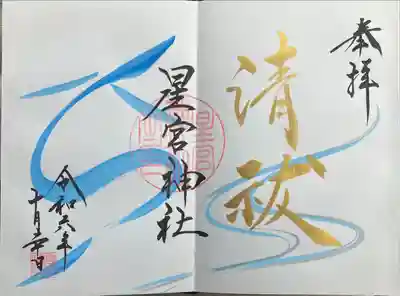 奉拝
清祓
星宮神社
令和六年
十月